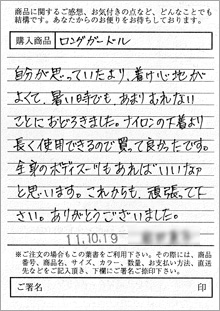 商品に関するご感想、お気付きの点など、どんなことでも
結構です。あなたからのお便りをお待ちしております。
購入商品 ロングガードル
自分が思っていたより、着け心地が
よくて、暑い時でも、あまりむれない
ことにおどろきました。ナイロンの下着より
長く使用できるので買って良かったです。
全身のボディスーツもあればいいなぁ
と思います。これからも、頑張って下
さい。ありがとうございました。
11.10.19
※ご注文の場合もこの葉書をご利用下さい。その際には、商品
番号、商品名、サイズ、カラー、数量、お支払い方法、直送
先などをご記入頂き、下欄にご署名ご捺印下さい。
ご署名 印